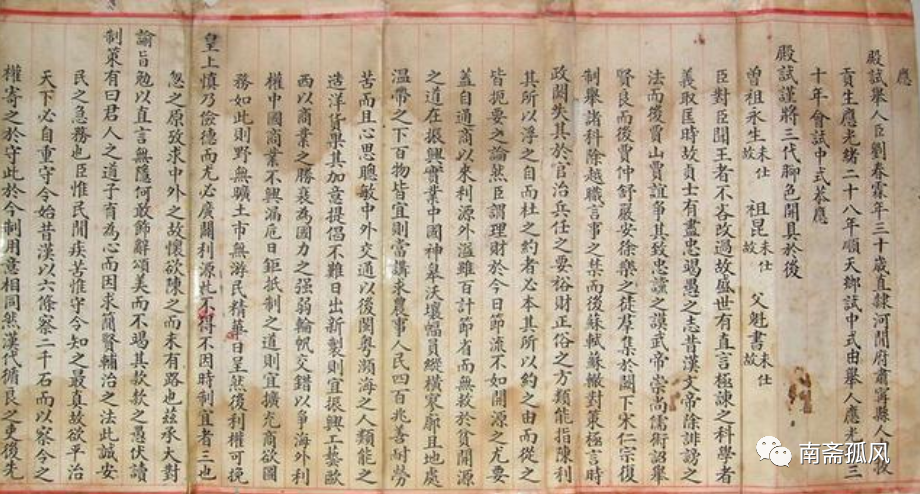 應
殿試舉人臣劉春霖年三十歲直隸河間府肅寧縣人由
貢生應光緒二十八年順天鄉試中式由舉人應光緒三
十年會試中式恭應
殿試謹將三代腳色開具於後
曾祖永生未仕故 祖昆未仕故 父魁書未仕故
臣對臣聞王者不吝改過故盛世有直言極諫之科學者
義取匡時故貢士有盡忠竭愚之志昔漢文帝除誹謗之
法而後賈山賈誼爭其致忠讜之謨武帝崇尚儒術詔舉
賢良而後賈仲舒嚴安徐樂之徒羣集於闕下宋仁宗復
制舉諸科除越職言事之禁而後蘇軾蘇轍對策極言時
政闕失其於官治兵任之要裕財正俗之方類能指陳利
其所以浮之自而杜之約者必本其所以約之由而從之
皆扼要之論然臣謂理財於今日節流不如開源之尤要
蓋自通商以來利源外溢雖百計節省而無救於貧開源
之道在振興實業中國神皋沃壤幅員縱橫寥廓且地處
溫帶之下百物皆宜則當講求農事人民四百兆善耐勞
苦而且心思聰敏中外交通以後閩粵瀕海之人類能之
造洋貨果其加意提倡不難日出新製則宜振興工藝歐
西以商業之勝衰為國力之強弱輪帆交錯以爭海外利
權中國商業不興漏卮日鉅抵制之道則宜擴充商欲國
務如此則野無曠土市無游民精華日呈然後利權可挽
皇上慎乃儉德而尤必廣闢利源此不得不因時制宜者三也
忽之原攷求中外之故懷欲陳之而未有路也茲承大對
諭旨勉以直言無隱何敢飾辭頌美而不竭其款款之愚伏讀
制策有曰君人之道子育為心而因求簡賢輔治之法此誠安
民之急務也臣惟民間疾苦惟守令知之最真故欲平治
天下必自重守令始昔漢以六條察二千石而以察令之
權寄之於守此於今制用意相同然漢代循良之吏後先
南斋孤风